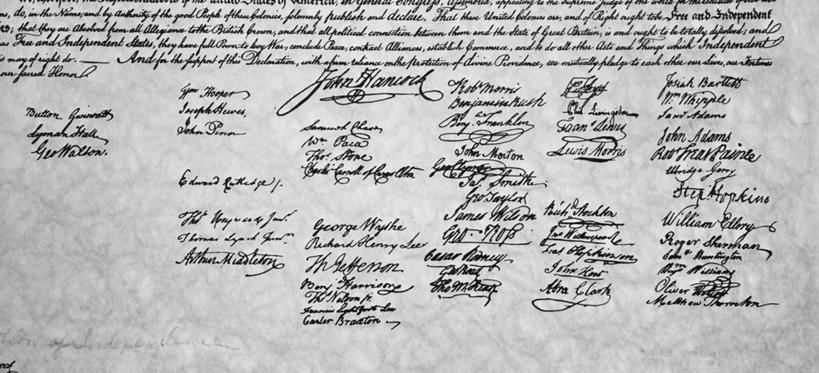 of America, in General Congress, Assembled, appealing to the Supreme Judge of the world for the
do, in the Name, and by Authority of the good People of these Colonies, solemnly publish and declare, That these United Colonies are, and of Right ought to be Free and Independent
that they are Absolved from all Allegiance to the British Crown, and that all political connection between them and the State of Great Britain, is and ought to be totally dissolved; and
as Free and Independent States, they have full Power to levy War, conclude Peace, contract Alliances, establish Commerce, and to do all other Acts and Things which Independent
may of right do. And for the support of this Declaration, with a firm reliance on the protection of divine Providence, we mutually pledge to each other our Lives, our Fortunes
our sacred Honor
Button Gwinnett
Lyman Hall
Geo Walton.
Wm Hooper
Joseph Hewes,
John Penn
Edward Rutledge /.
Thos Heyward Junr.
Thomas Lynch Junr.
Arthur Middleton
John Hancock
Samuel Chase
Wm Paca
Thos Stone
Charles Carroll of Carrollton
George Wythe
Richard Henry Lee
Th Jefferson
Benj Harrison
Thos Nelson jr.
Francis Lightfoot Lee
Carter Braxton
Robt Morris
Benjamin Rush
Benj. Franklin
John Morton
Geo Clymer
Jas. Smith
Geo. Taylor
James Wilson
Geo. Ross
Caesar Rodney
Geo Read
Tho M:Kean
Phil. Livingston
Frans. Lewis
Lewis Morris
Richd. Stockton
Jno Witherspoon
Fras. Hopkinson
John Hart
Abra Clark
Josiah Bartlett
Wm Whipple
Saml Adams
John Adams
Robt Treat Paine
Elbridge Gerry
Step. Hopkins
William Ellery
Roger Sherman
Saml Huntington
Wm Williams
Oliver Wolcott
Matthew Thornton